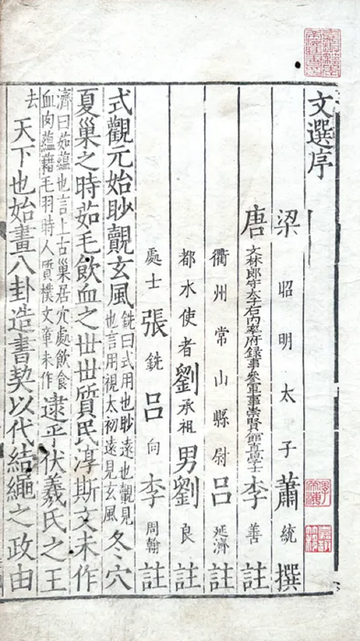 文選序
梁昭明太子蕭統撰
唐文林郎守太子右內率府録事參軍事崇賢館直學士李善註
衢州常山縣尉呂延濟註
都水使者劉承祖男劉良註
處士張銑呂向李周翰註
式觀元始眇覿玄風銑曰式用也眇遠也覿見也言用視太初遠見玄風冬穴
夏巢之時茹毛飲血之世世質民淳斯文未作
濟曰茹蘊也言上古巢居穴處飲食血肉蘊藉毛羽時人質樸文章未作逮乎伏羲氏之王
去天下也始畫八卦造書契以代結繩之政由